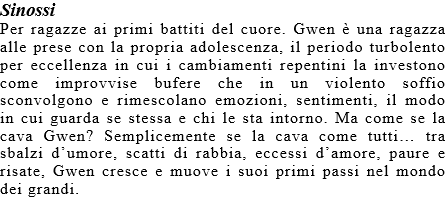 Sinossi
Per ragazze ai primi battiti del cuore. Gwen è una ragazza
alle prese con la propria adolescenza, il periodo turbolento
per eccellenza in cui i cambiamenti repentini la investono
come improvvise bufere che in un violento soffio
sconvolgono e rimescolano emozioni, sentimenti, il modo
in cui guarda se stessa e chi le sta intorno. Ma come se la
cava Gwen? Semplicemente se la cava come tutti... tra
sbalzi d’umore, scatti di rabbia, eccessi d’amore, paure e
risate, Gwen cresce e muove i suoi primi passi nel mondo
dei grandi.